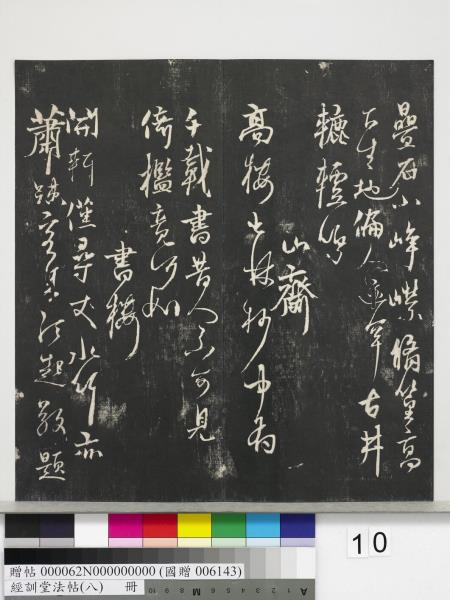 疊石小崢嶸脩篁高
下生地偏人迹罕古井
轆轤鳴
山齋
高樓出林杪中有
千載書昔人不可見
倚檻竟何如
書樓
開軒僅尋丈水竹亦
蕭疎客来須起敬題
10
贈帖 000062N000000000 (國贈 006143)
經訓堂法帖(八) 冊